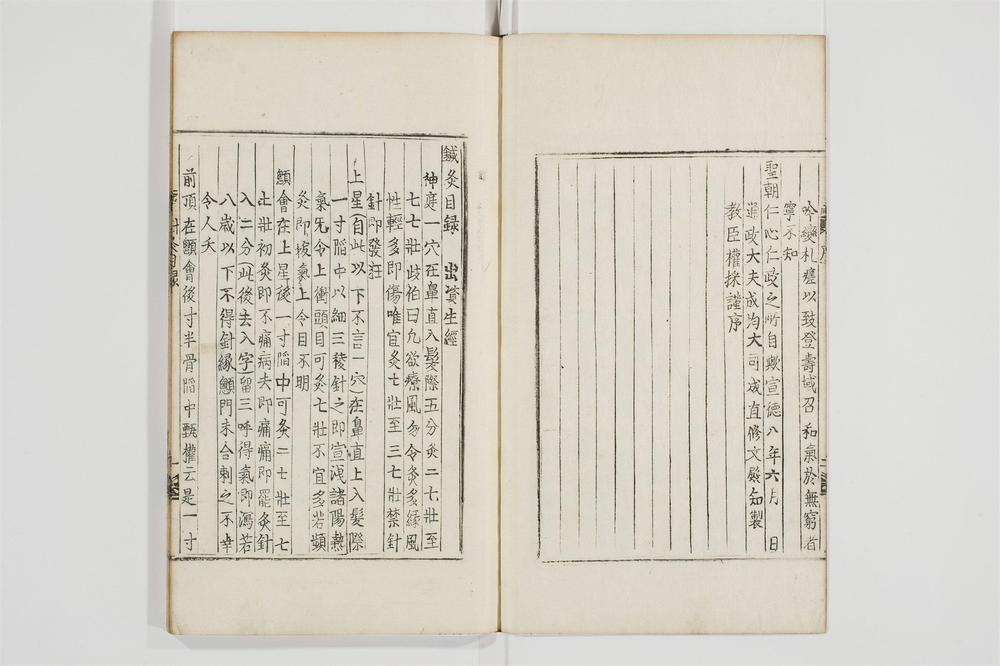 吟變札瘥以致登壽域召 和氣於無窮者
寧不知
聖朝仁心仁政之所自歟宣德八年六月 日
通政大夫成均大司成直修文殿知製
教臣權採謹序
鍼灸目録 出資生經
神庭一穴在鼻直入髮際五分灸二七壯至
七七壯歧伯曰凡欲療風勿令灸多緣風
性輕多即傷唯宜灸七壯至三七壯禁針
針即發狂
上星(自此以下不言一穴)在鼻直上入髮際
一寸陷中以細三稜針之即宣洩諸陽熱
氣旡令上衝頭目可灸七壯不宜多若頻
灸即拔氣上令目不明
顖會在上星後一寸陷中可灸二七壯至七
七壯初灸即不痛病去即痛痛即罷灸針
入二分(此後去入字)留三呼得氣即瀉若
八歲以下不得針緣顖門未合刺之不幸
令人夭
前頂在顖會後寸半骨陷中甄權云是一寸